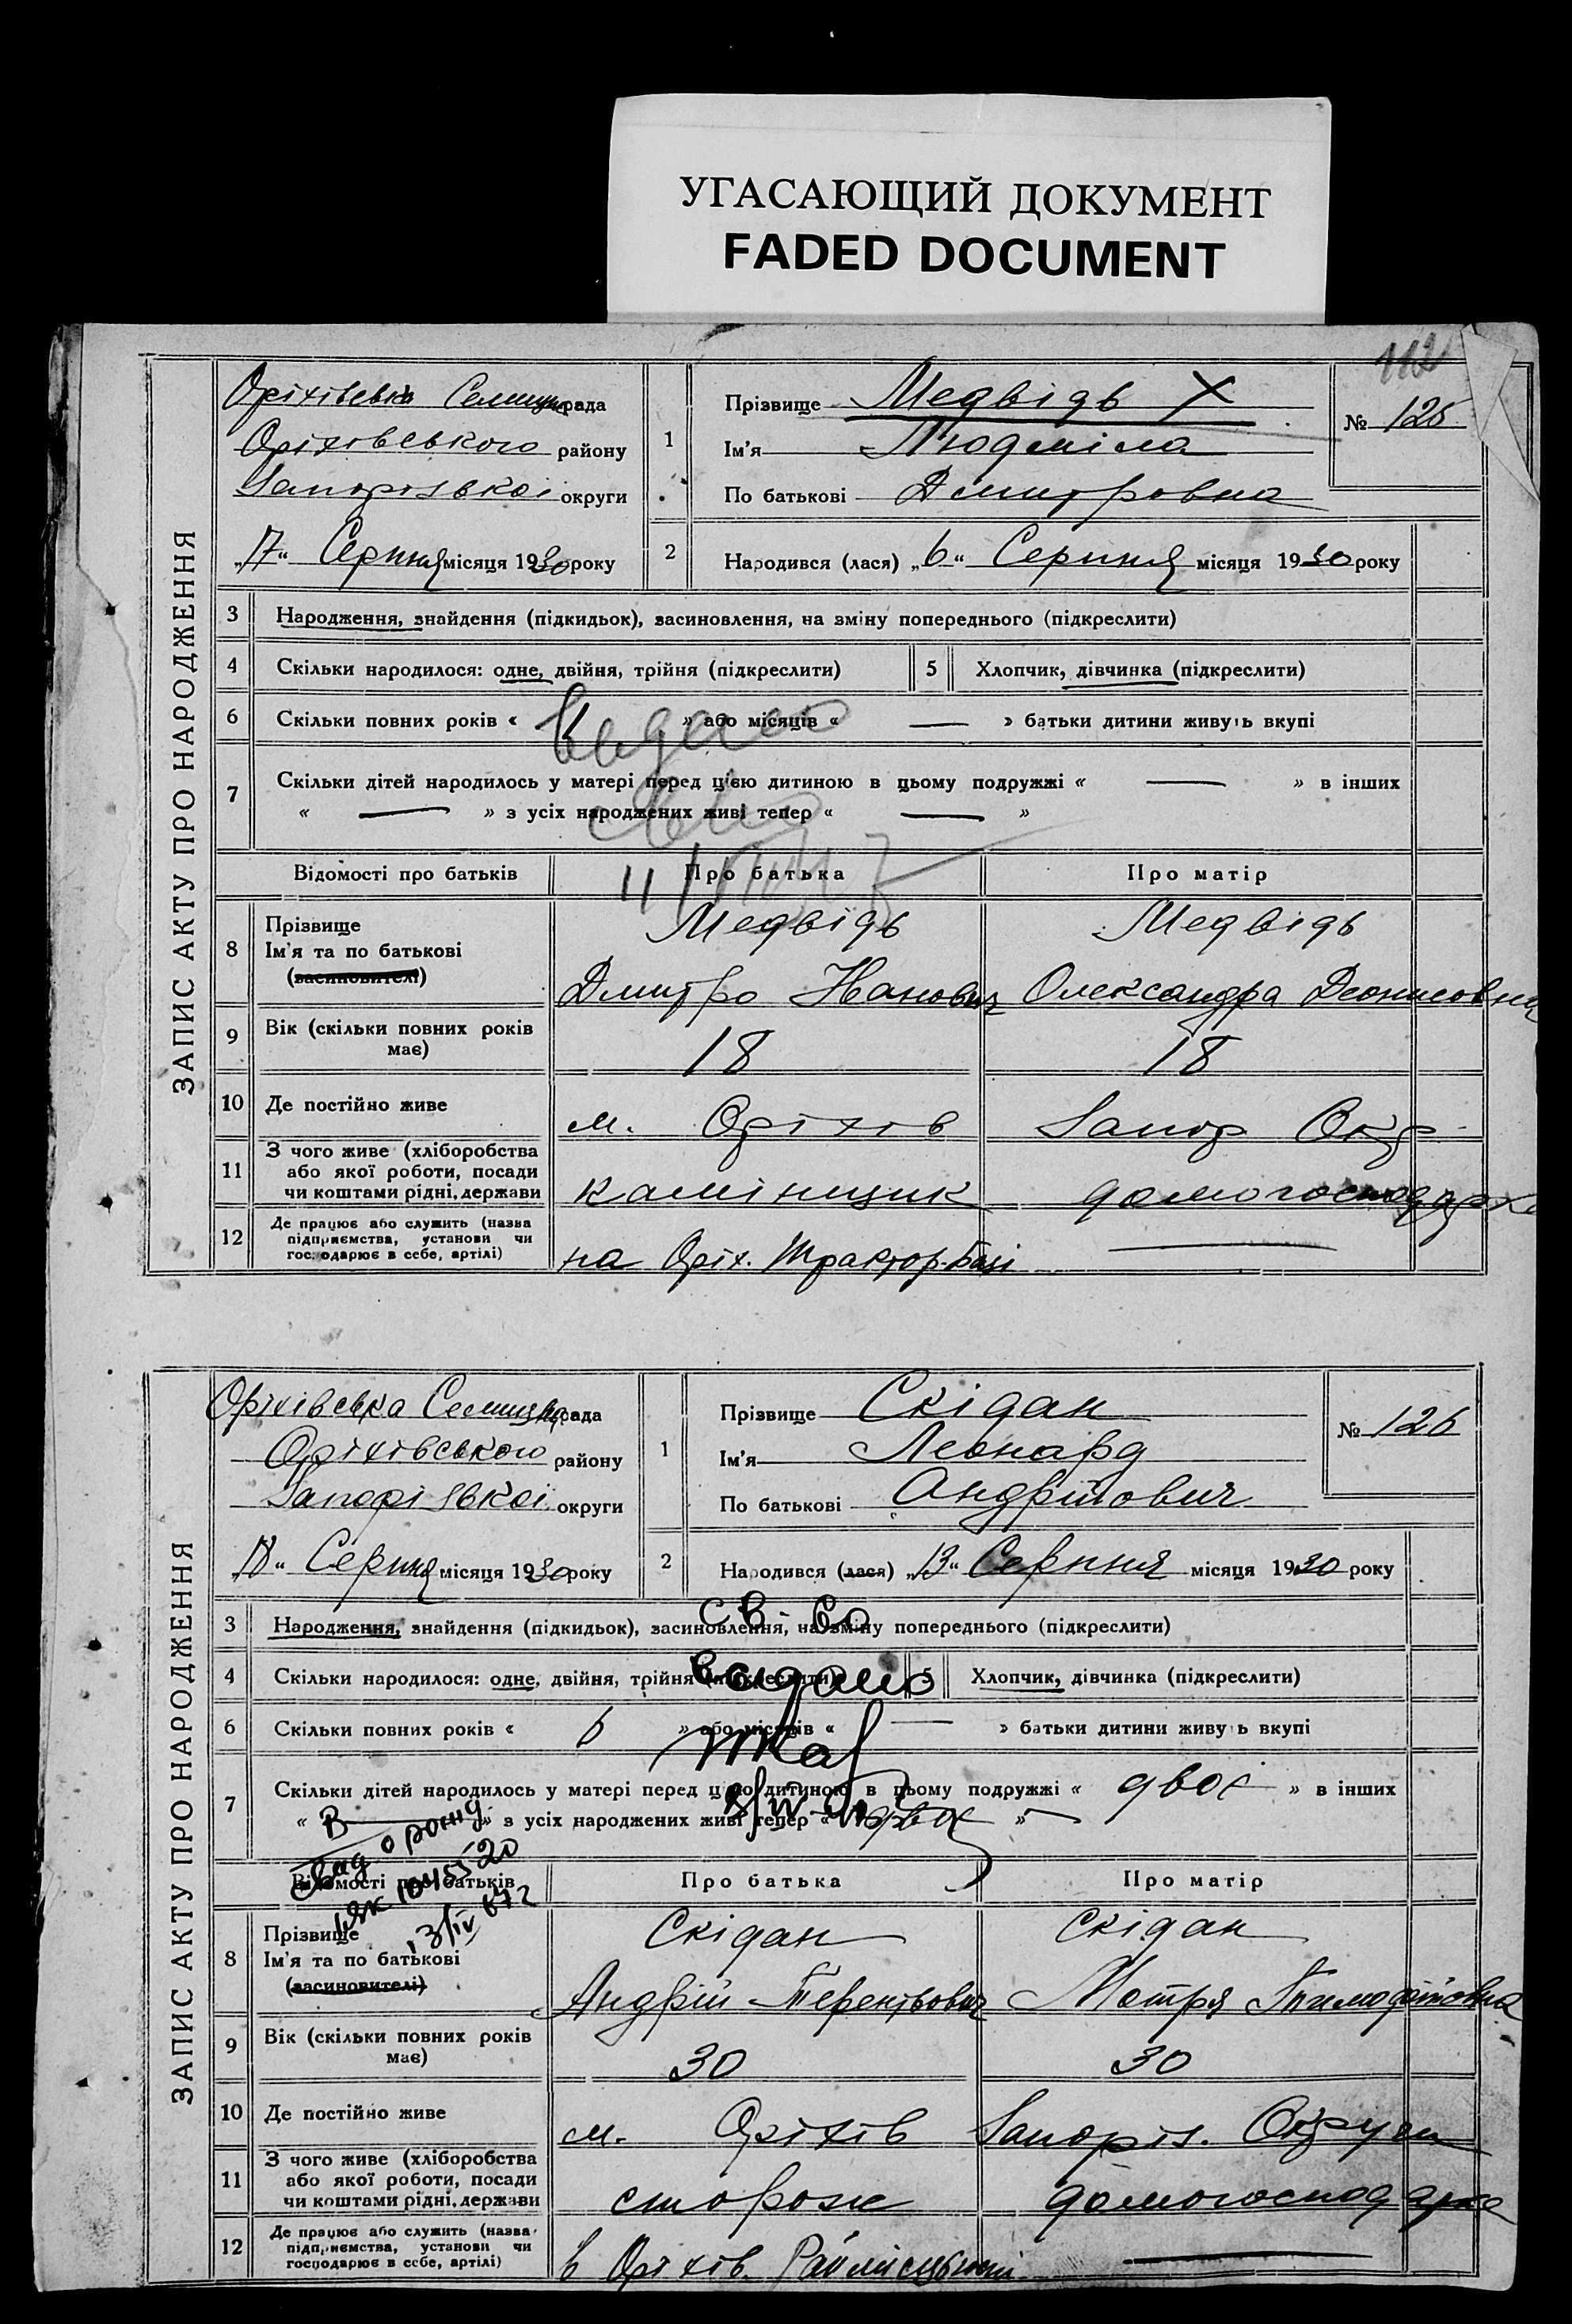 УГАСАЮЩИЙ ДОКУМЕНТ
FADED DOCUMENT
112
ЗАПИС АКТУ ПРО НАРОДЖЕННЯ
Оріхівська Селищна рада
Оріхівського району
Запорізької округи
„17“ Серпня місяця 1930 року
1
Прізвище Медвідь X
Ім'я Людміла
По батькові Дмитровна
№ 125
2
Народився (лася) „6“ Серпня місяця 1930 року
3 Народження, знайдення (підкидьок), засиновлення, на зміну попереднього (підкреслити)
4 Скільки народилося: одне, двійня, трійня (підкреслити) 5 Хлопчик, дівчинка (підкреслити)
6 Скільки повних років « 1 » або місяців « — » батьки дитини живуть вкупі
Видано
7 Скільки дітей народилось у матері перед цією дитиною в цьому подружжі « — » в інших
« — » з усіх народжених живі тепер « — »
Відомості про батьків Про батька Про матір
8 Прізвище Медвідь Медвідь
Ім'я та по батькові
(засиновителі) Дмитро Іванович Олександра Деонисовна
9 Вік (скільки повних років має) 18 18
10 Де постійно живе м. Оріхів Запор Окр
11 З чого живе (хліборобства
або якої роботи, посади
чи коштами рідні, держави камінщик домогосподарка
12 Де працює або служить (назва
підприємства, установи чи
господарює в себе, артілі) на Оріх. Трактор-базі —
ЗАПИС АКТУ ПРО НАРОДЖЕННЯ
Оріхівська Селищна рада
Оріхівського району
Запорізької округи
„18“ Серпня місяця 1930 року
1
Прізвище Скідан
Ім'я Леонард
По батькові Андрійович
№ 126
2
Народився (лася) „13“ Серпня місяця 1930 року
3 Народження, знайдення (підкидьок), засиновлення, на зміну попереднього (підкреслити)
св-во
4 Скільки народилося: одне, двійня, трійня (підкреслити) 5 Хлопчик, дівчинка (підкреслити)
видано
6 Скільки повних років « 6 » або місяців « — » батьки дитини живуть вкупі
7 Скільки дітей народилось у матері перед цією дитиною в цьому подружжі « двоє » в інших
« — » з усіх народжених живі тепер « двоє »
В
свид о рожд
1045520
13/IV 67 г
Відомості про батьків Про батька Про матір
8 Прізвище Скідан Скідан
Ім'я та по батькові
(засиновителі) Андрій Терентьович Мотря Тимофіївна
9 Вік (скільки повних років має) 30 30
10 Де постійно живе м. Оріхів Запоріз. Округи
11 З чого живе (хліборобства
або якої роботи, посади
чи коштами рідні, держави сторож домогосподарка
12 Де працює або служить (назва
підприємства, установи чи
господарює в себе, артілі) в Оріхів. —